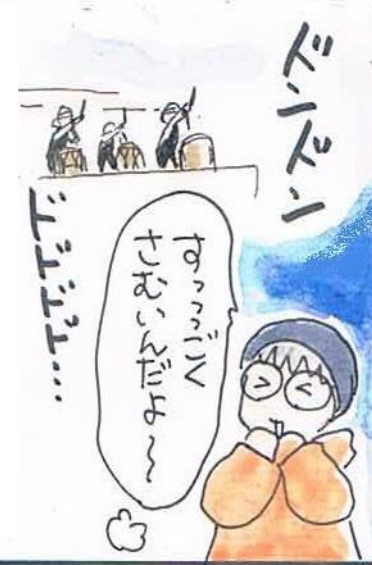 ドンドン
ドドドド…
すっっごく
さむいんだよ〜